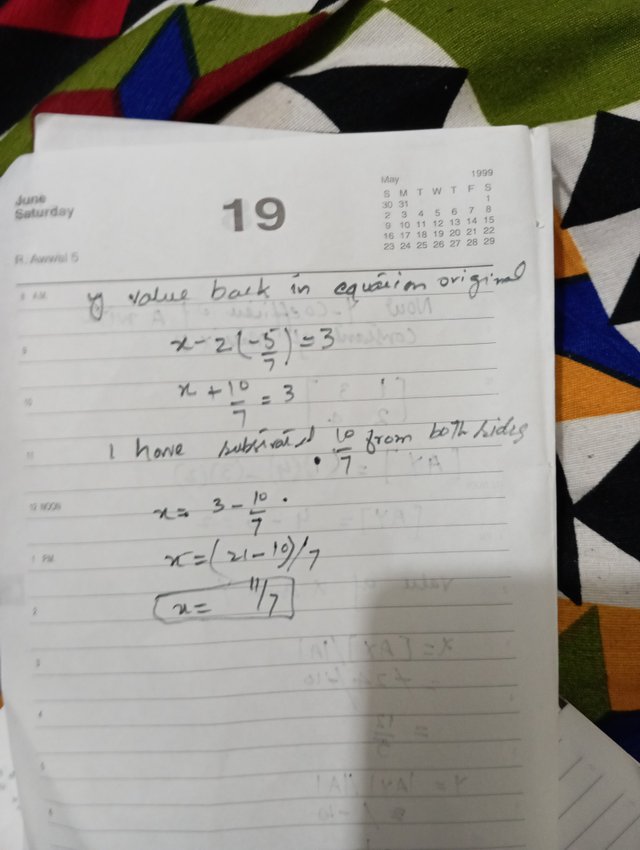 June
Saturday
19
May 1999
S M T W T F S
30 31 1
2 3 4 5 6 7 8
9 10 11 12 13 14 15
16 17 18 19 20 21 22
23 24 25 26 27 28 29
R. Awwal 5
8 AM
y value back in equation original
9
x - 2(-5/7) = 3
10
x + 10/7 = 3
11
I have subtrated 10/7 from both sides
12 NOON
x = 3 - 10/7 .
1 PM
x = (21 - 10)/7
2
x = 11/7
3
4
5
6